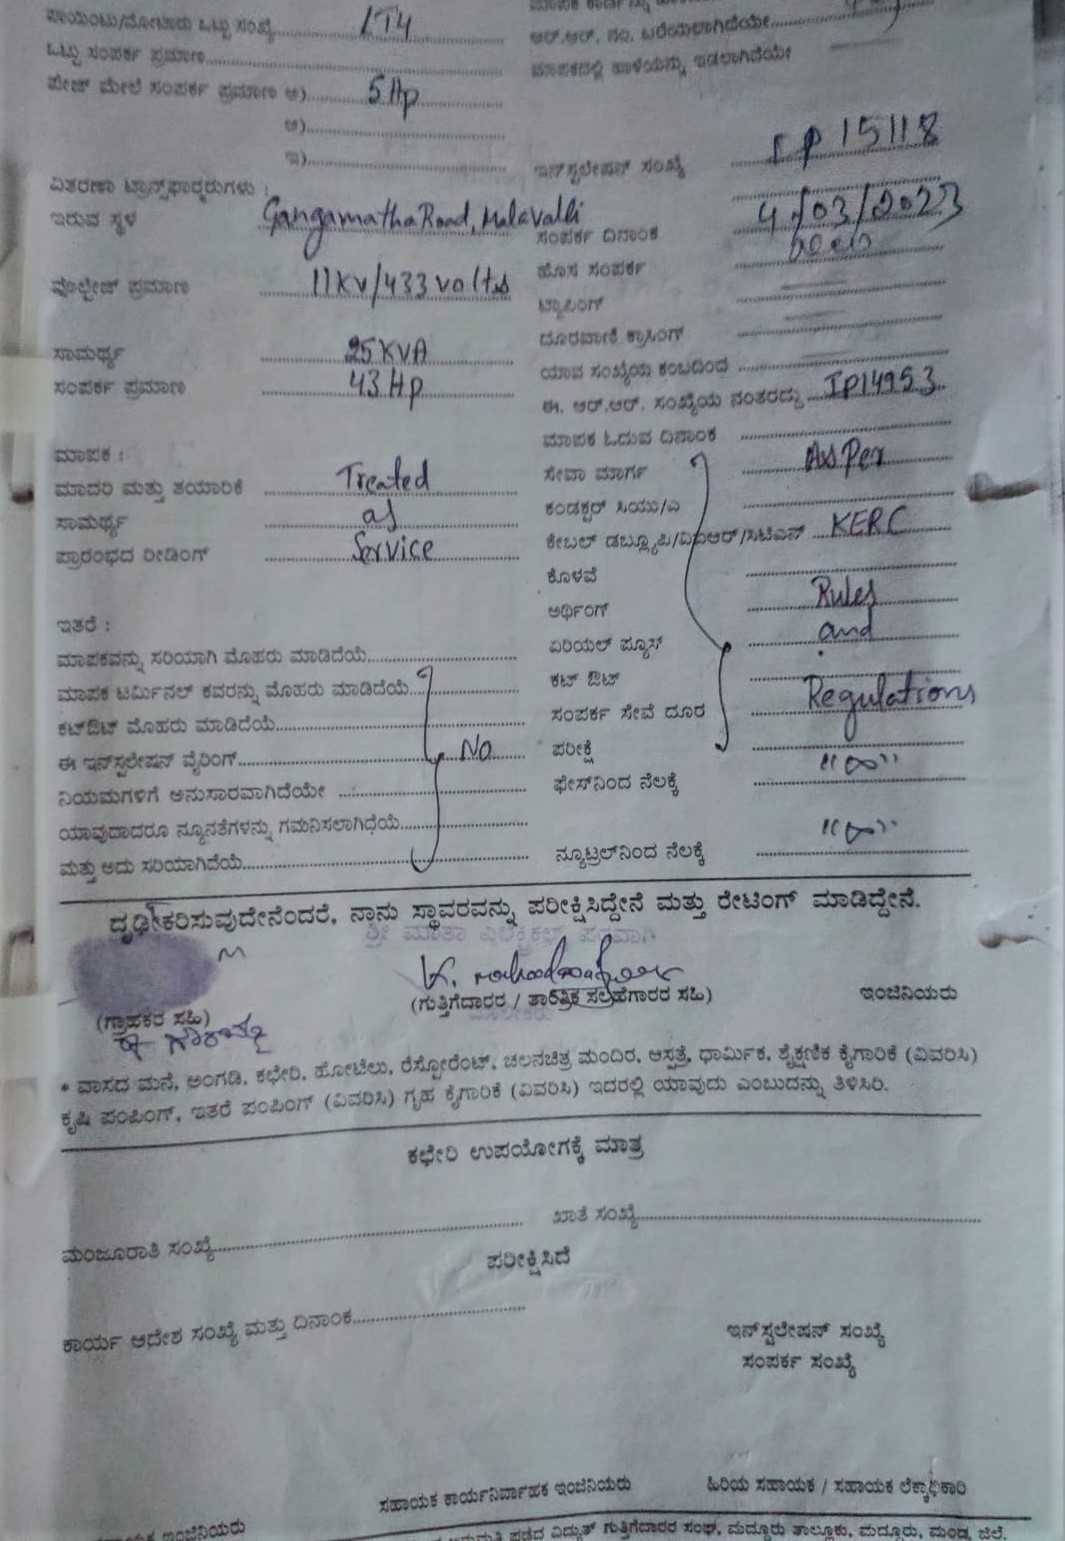 ಪಾಯಿಂಟು/ಮೋಟಾರು ಒಟ್ಟು ಸಂಖ್ಯೆ
ಒಟ್ಟು ಸಂಪರ್ಕ ಪ್ರಮಾಣ
ಪೇಜ್ ಮೇಲೆ ಸಂಪರ್ಕ ಪ್ರಮಾಣ ಅ) 5Hp
ಆ)
ಇ)
ವಿತರಣಾ ಟ್ರಾನ್ಸ್‌ಫಾರ್‍ಮರುಗಳು :
ಇರುವ ಸ್ಥಳ Gangamatha Road, Malavalli
ವೋಲ್ಟೇಜ್ ಪ್ರಮಾಣ 11KV/433 volts
ಸಾಮರ್ಥ್ಯ 25 KVA
ಸಂಪರ್ಕ ಪ್ರಮಾಣ 43 Hp
ಮಾಪಕ :
ಮಾದರಿ ಮತ್ತು ತಯಾರಿಕೆ Treated
ಸಾಮರ್ಥ್ಯ as
ಪ್ರಾರಂಭದ ರೀಡಿಂಗ್ Service
ಇತರೆ :
ಮಾಪಕವನ್ನು ಸರಿಯಾಗಿ ಮೊಹರು ಮಾಡಿದೆಯೆ
ಮಾಪಕ ಟರ್ಮಿನಲ್ ಕವರನ್ನು ಮೊಹರು ಮಾಡಿದೆಯೆ
ಕಟ್‌ಔಟ್ ಮೊಹರು ಮಾಡಿದೆಯೆ
ಈ ಇನ್‌ಸ್ಟಲೇಷನ್ ವೈರಿಂಗ್ No
ನಿಯಮಗಳಿಗೆ ಅನುಸಾರವಾಗಿದೆಯೇ
ಯಾವುದಾದರೂ ನ್ಯೂನತೆಗಳನ್ನು ಗಮನಿಸಲಾಗಿದೆಯೆ
ಮತ್ತು ಅದು ಸರಿಯಾಗಿದೆಯೆ
ಆರ್.ಆರ್. ನಂ. ಬರೆಯಲಾಗಿದೆಯೇ
ಮಾಪಕದಲ್ಲಿ ಹಾಳೆಯನ್ನು ಇಡಲಾಗಿದೆಯೇ
ಇನ್‌ಸ್ಟಲೇಷನ್ ಸಂಖ್ಯೆ IP 15118
ಸಂಪರ್ಕ ದಿನಾಂಕ 4/03/2023
ಹೊಸ ಸಂಪರ್ಕ
ಟ್ಯಾಪಿಂಗ್
ದೂರವಾಣಿ ಕ್ರಾಸಿಂಗ್
ಯಾವ ಸಂಖ್ಯೆಯ ಕಂಬದಿಂದ
ಈ. ಆರ್.ಆರ್. ಸಂಖ್ಯೆಯ ನಂತರದ್ದು IP14953
ಮಾಪಕ ಓದುವ ದಿನಾಂಕ
ಸೇವಾ ಮಾರ್ಗ As Per
ಕಂಡಕ್ಟರ್ ಸಿಯು/ಎ
ಕೇಬಲ್ ಡಬ್ಲ್ಯೂಪಿ/ವಿಐಆರ್/ಸಿಟಿಎಸ್ KERC
ಕೊಳವೆ
ಅರ್ಥಿಂಗ್ Rules
ಏರಿಯಲ್ ಪ್ಯೂಸ್ and
ಕಟ್ ಔಟ್
ಸಂಪರ್ಕ ಸೇವೆ ದೂರ Regulations
ಪರೀಕ್ಷೆ
ಫೇಸ್‌ನಿಂದ ನೆಲಕ್ಕೆ "∞"
ನ್ಯೂಟ್ರಲ್‌ನಿಂದ ನೆಲಕ್ಕೆ "∞"
ದೃಢೀಕರಿಸುವುದೇನೆಂದರೆ, ನಾನು ಸ್ಥಾವರವನ್ನು ಪರೀಕ್ಷಿಸಿದ್ದೇನೆ ಮತ್ತು ರೇಟಿಂಗ್ ಮಾಡಿದ್ದೇನೆ.
ಶ್ರೀ ಮಾತಾ ಎಲೆಕ್ಟ್ರಿಕಲ್ಸ್ ಪರವಾಗಿ
(ಗ್ರಾಹಕರ ಸಹಿ) (ಗುತ್ತಿಗೆದಾರರ / ತಾಂತ್ರಿಕ ಸಲಹೆಗಾರರ ಸಹಿ) ಇಂಜಿನಿಯರು
* ವಾಸದ ಮನೆ, ಅಂಗಡಿ, ಕಛೇರಿ, ಹೋಟೆಲು, ರೆಸ್ಟೋರೆಂಟ್, ಚಲನಚಿತ್ರ ಮಂದಿರ, ಆಸ್ಪತ್ರೆ, ಧಾರ್ಮಿಕ, ಶೈಕ್ಷಣಿಕ ಕೈಗಾರಿಕೆ (ವಿವರಿಸಿ)
ಕೃಷಿ ಪಂಪಿಂಗ್, ಇತರೆ ಪಂಪಿಂಗ್ (ವಿವರಿಸಿ) ಗೃಹ ಕೈಗಾರಿಕೆ (ವಿವರಿಸಿ) ಇದರಲ್ಲಿ ಯಾವುದು ಎಂಬುದನ್ನು ತಿಳಿಸಿರಿ.
ಕಛೇರಿ ಉಪಯೋಗಕ್ಕೆ ಮಾತ್ರ
ಮಂಜೂರಾತಿ ಸಂಖ್ಯೆ ಖಾತೆ ಸಂಖ್ಯೆ
ಪರೀಕ್ಷಿಸಿದೆ
ಕಾರ್ಯ ಆದೇಶ ಸಂಖ್ಯೆ ಮತ್ತು ದಿನಾಂಕ
ಇನ್‌ಸ್ಟಲೇಷನ್ ಸಂಖ್ಯೆ
ಸಂಪರ್ಕ ಸಂಖ್ಯೆ
ಇಂಜಿನಿಯರು ಸಹಾಯಕ ಕಾರ್ಯನಿರ್ವಾಹಕ ಇಂಜಿನಿಯರು ಹಿರಿಯ ಸಹಾಯಕ / ಸಹಾಯಕ ಲೆಕ್ಕಾಧಿಕಾರಿ
ಅನುಮತಿ ಪಡೆದ ವಿದ್ಯುತ್ ಗುತ್ತಿಗೆದಾರರ ಸಂಘ, ಮದ್ದೂರು ತಾಲ್ಲೂಕು, ಮದ್ದೂರು, ಮಂಡ್ಯ ಜಿಲ್ಲೆ.